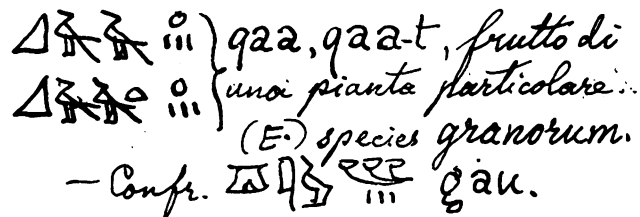 qaa, qaa-t, frutto di
una pianta particolare.
(E.) species granorum.
— Confr. gau.